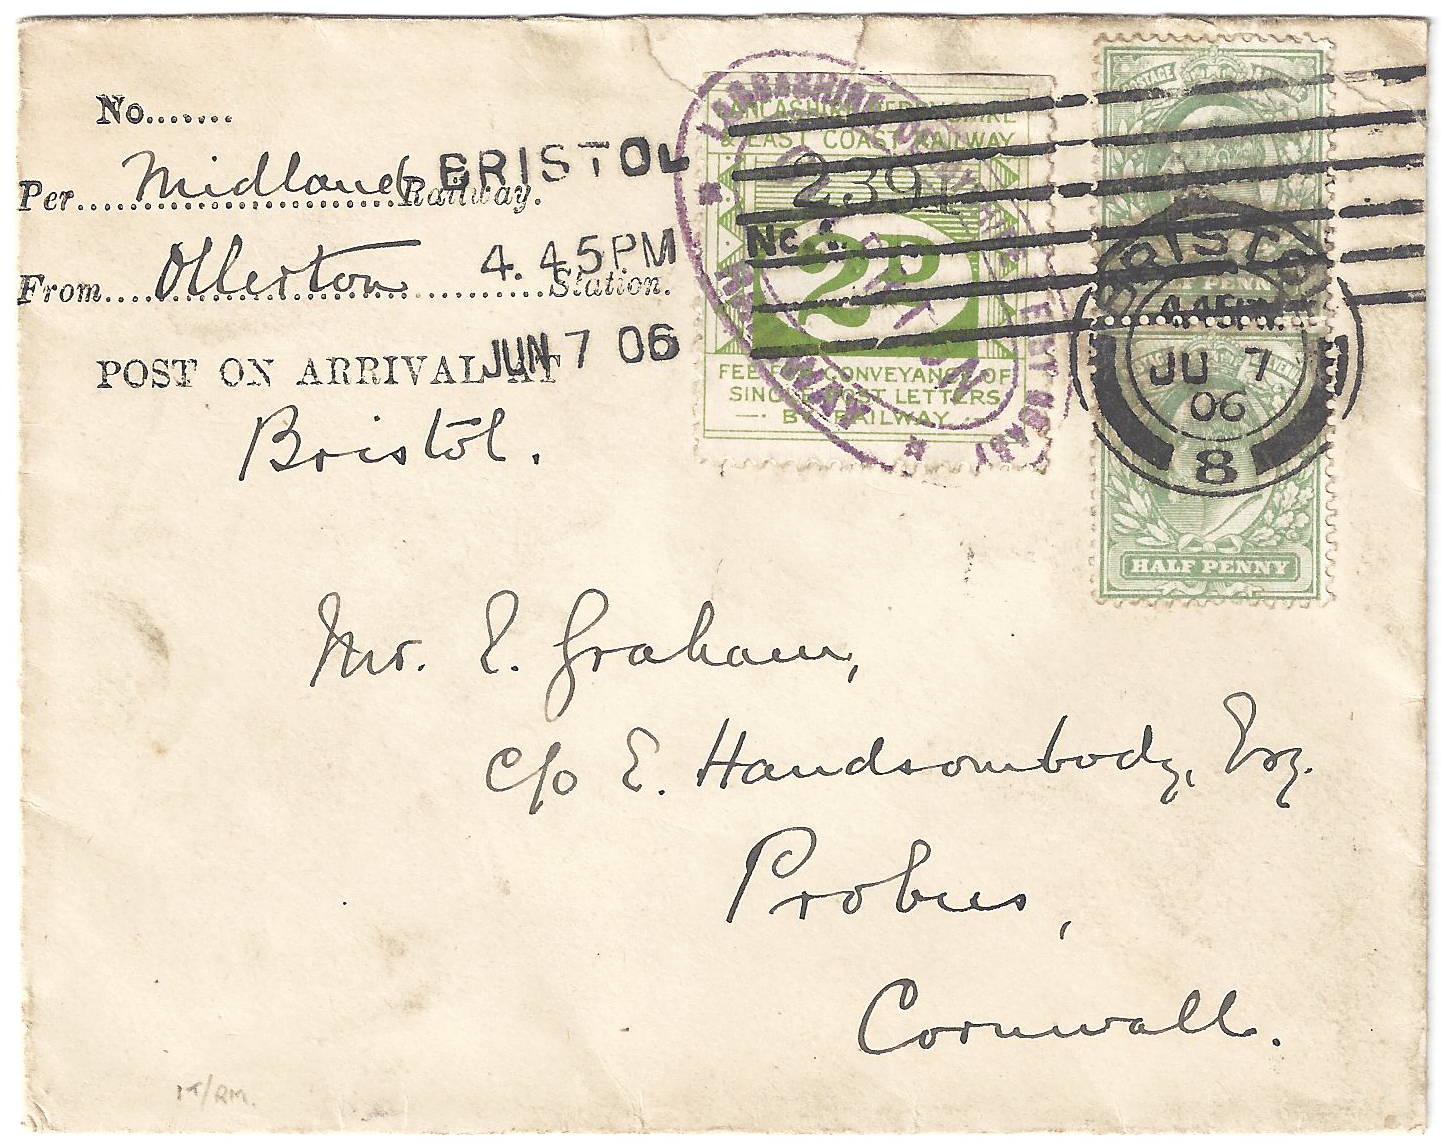 No.......
Per Midland Railway.
BRISTOL
From Ollerton Station.
4.45PM
POST ON ARRIVAL AT
JUN 7 06
Bristol.
LANCASHIRE DERBYSHIRE
& EAST COAST RAILWAY
2391
No
2D
FEE FOR CONVEYANCE OF
SINGLE POST LETTERS
BY RAILWAY
POSTAGE
HALF PENNY
BRISTOL
4.45PM
JU 7
06
8
HALF PENNY
Mr. E. Graham,
c/o E. Handsombody, Esq.
Probus,
Cornwall.